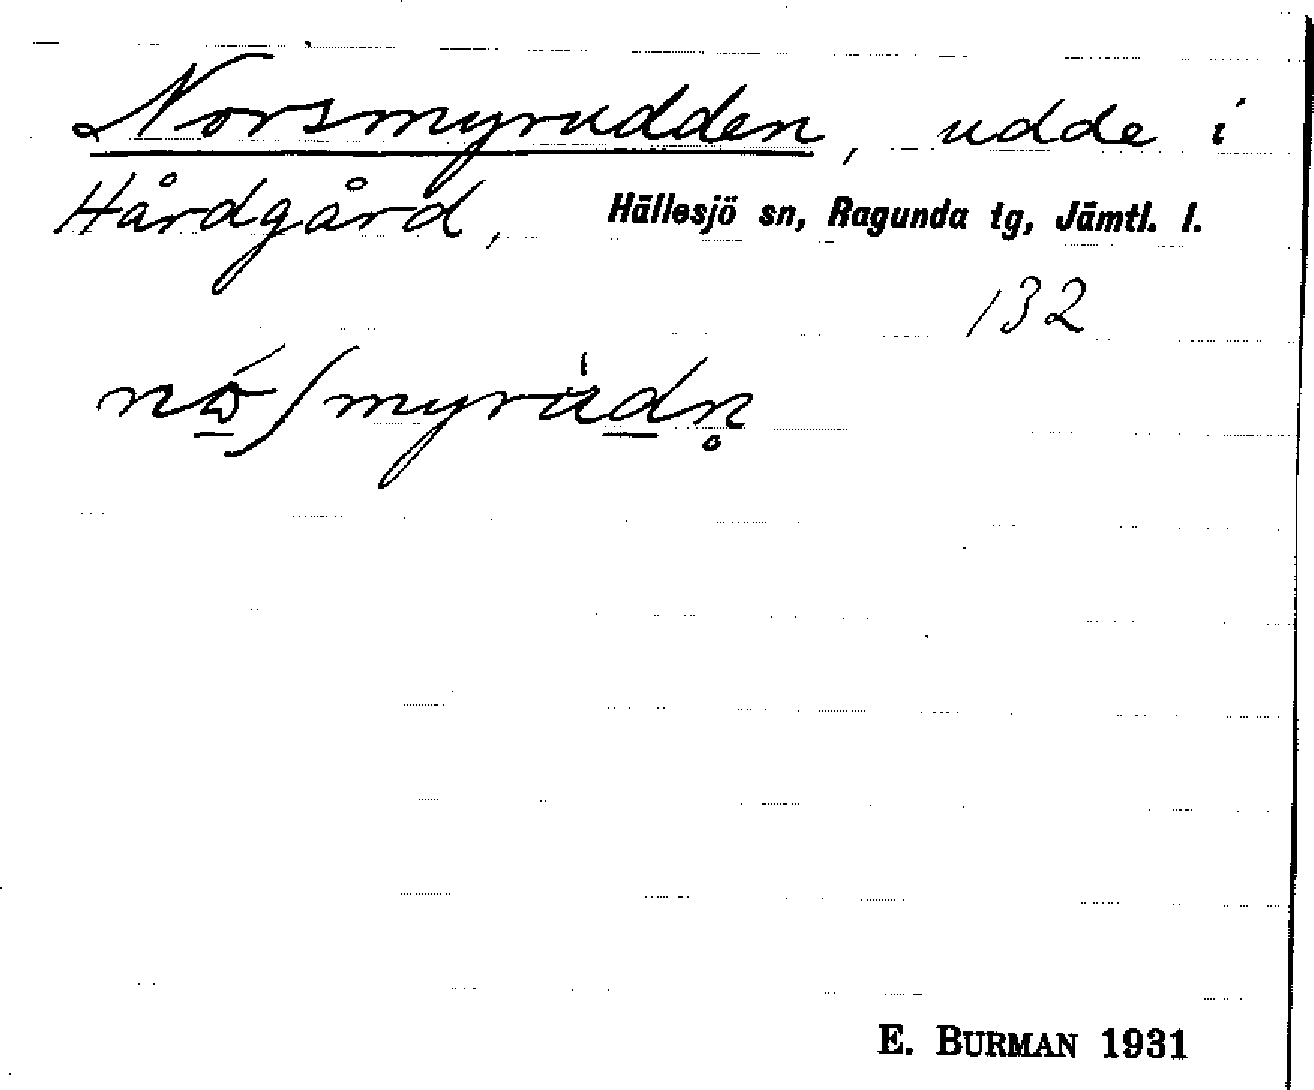 Norsmyrudden, udde i
Hårdgård, Hällesjö sn, Ragunda tg, Jämtl. l.
132
E. BURMAN 1931